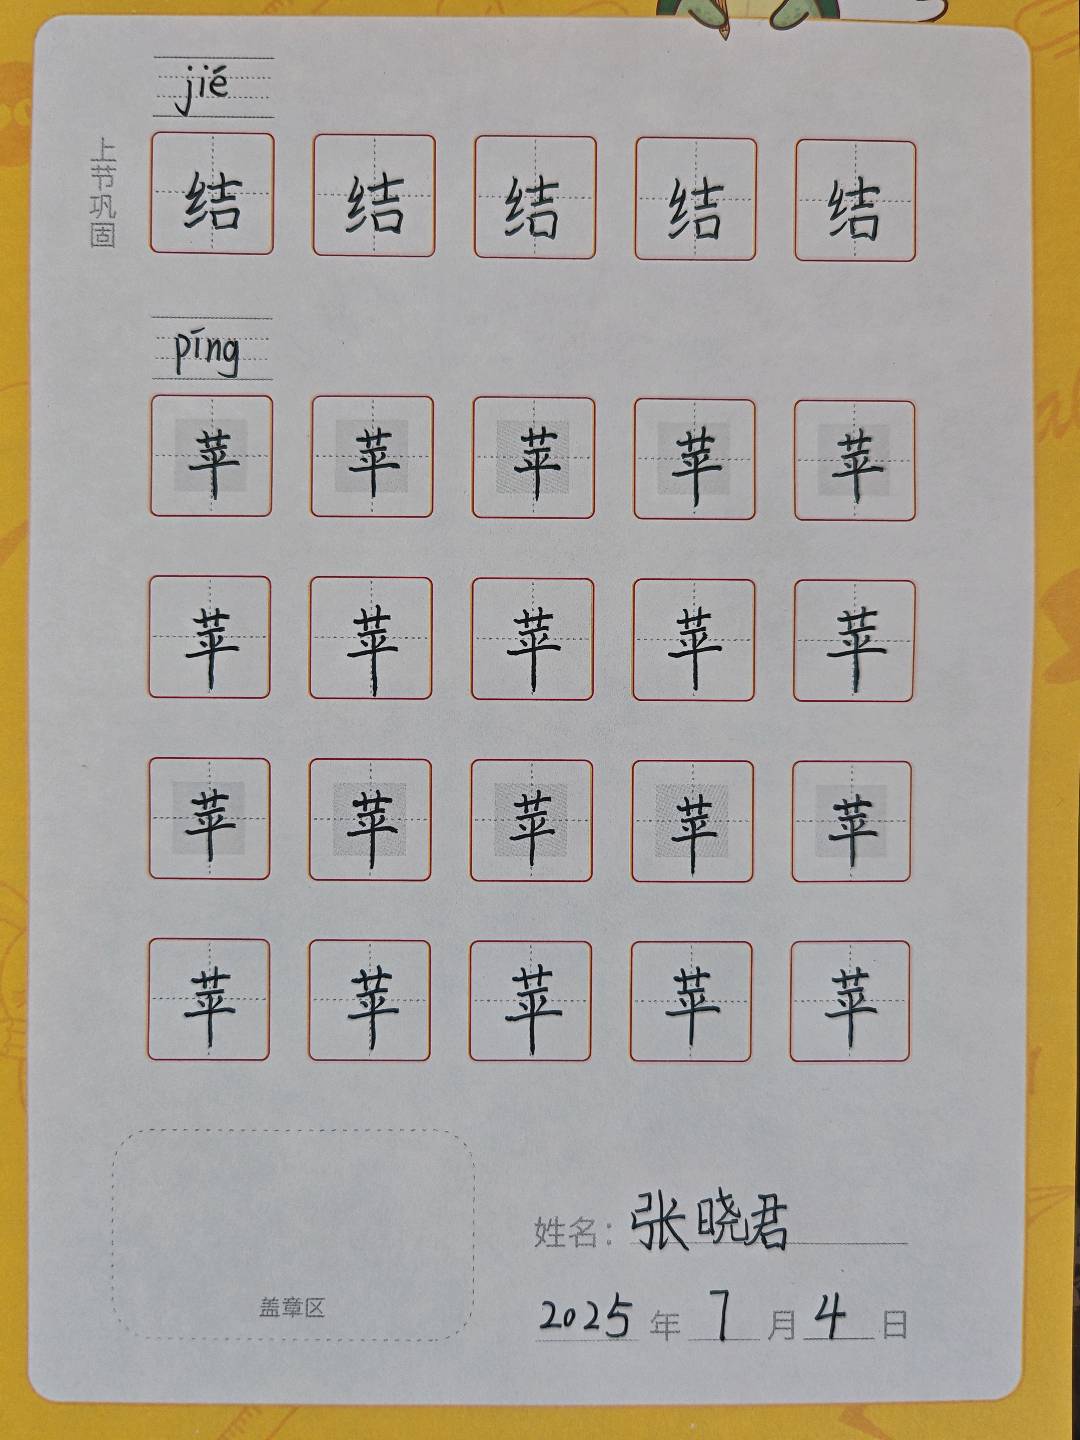 jié
上节巩固
结 结 结 结 结
píng
苹 苹 苹 苹 苹
苹 苹 苹 苹 苹
苹 苹 苹 苹 苹
苹 苹 苹 苹 苹
姓名：张晓君
盖章区
2025年7月4日